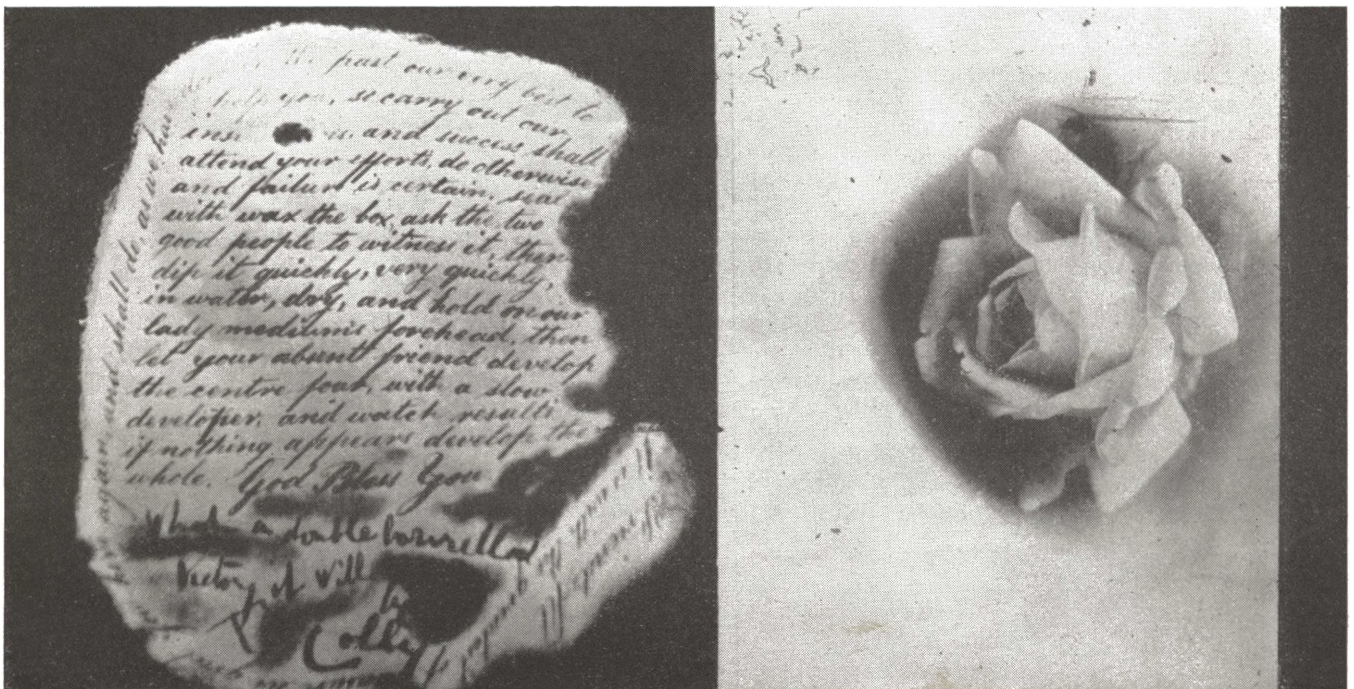 the past our very best to
help you, so carry out our
ins is and success shall
attend your efforts, do otherwise
and failure is certain. seal
with wax the box, ask the two
good people to witness it, then
dip it quickly, very quickly,
in water, dry, and hold on our
lady mediums forehead, then
let your absent friend develop
the centre four, with a slow
developer, and watch results
if nothing appears develop the
whole. God Bless You
What a double barrelled
Victory of Will
by
Colley
again and shall do, as we have